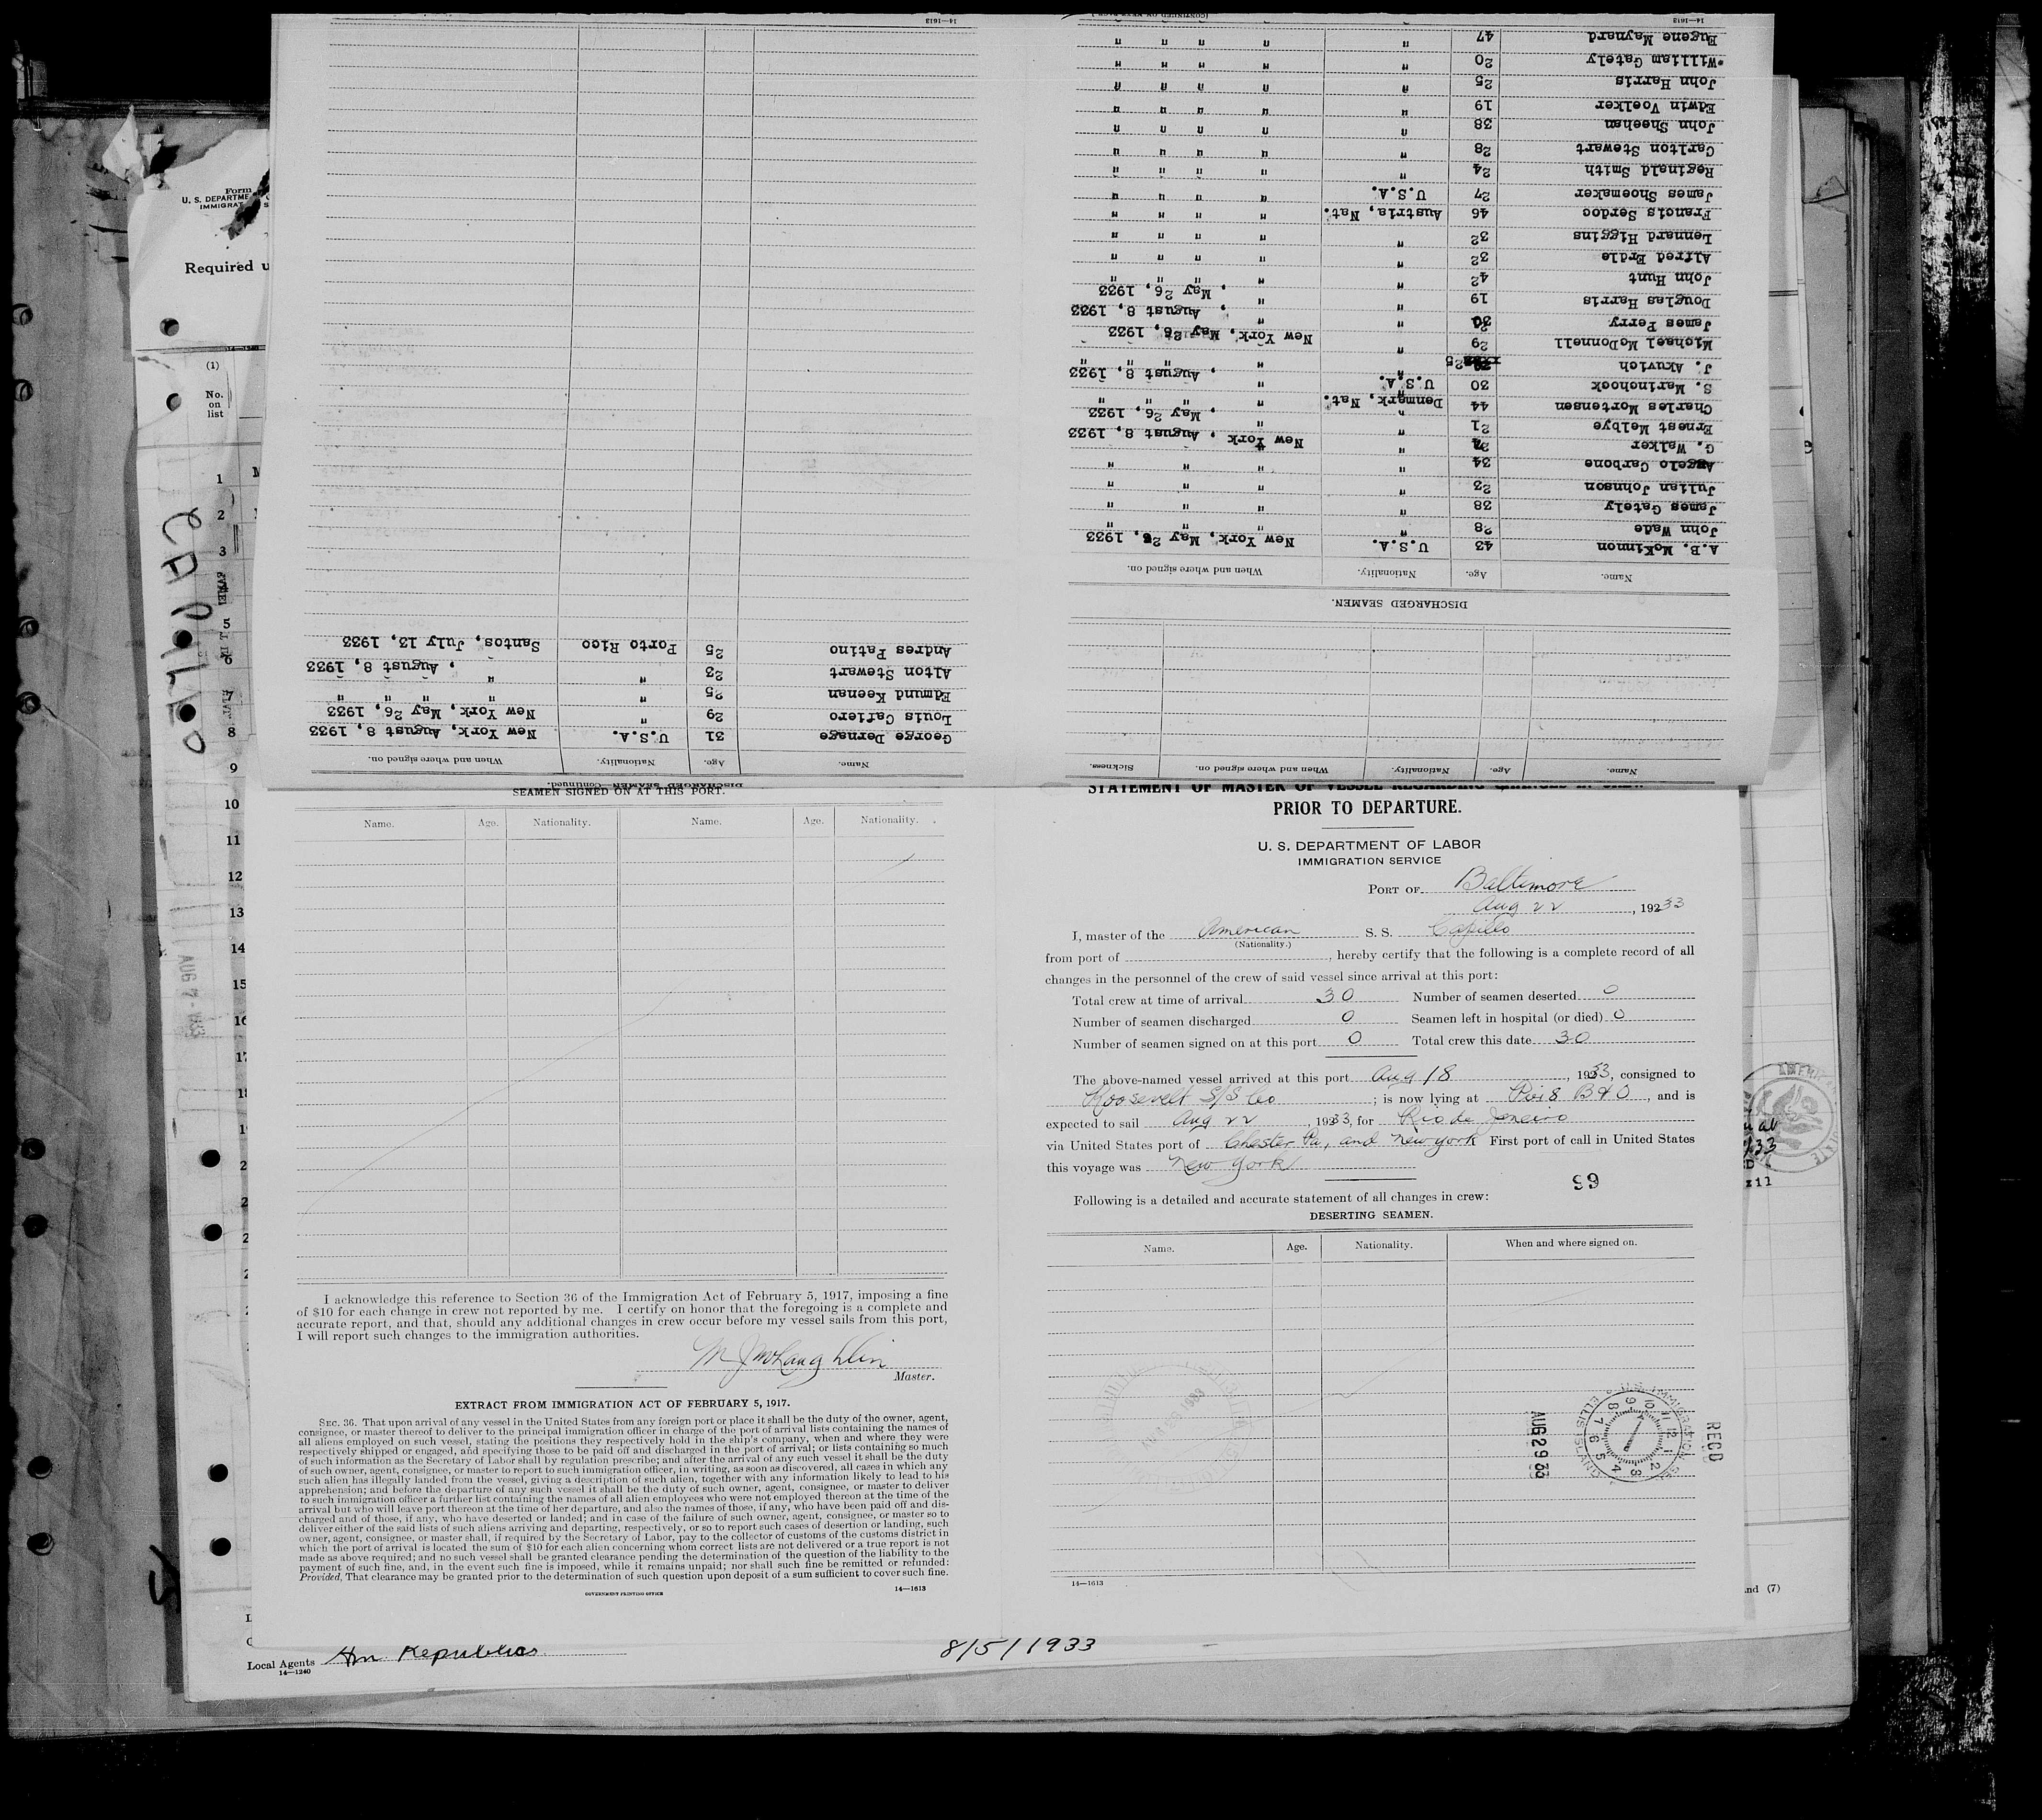 DISCHARGED SEAMEN.
Name. Age. Nationality. When and where signed on.
A.B. McKinnon 43 U.S.A. New York, May 26, 1933
John Wade 28 " " " "
James Gately 38 " " " "
Julian Johnson 23 " " " "
Angelo Carbone 34 " " " "
G. Walker " New York , August 8, 1933
Ernest Melbye 21 " " , May 26, 1933
Charles Mortensen 44 Denmark, Nat. " " " "
S. Marinchook 30 U.S.A. " , August 8, 1933
J. Akuvich 25 " " " " "
Michael McDonnell 29 " New York, May 26, 1933
James Perry 30 " " , August 8, 1933
Douglas Harris 19 " " , May 26, 1933
John Hunt 42 " " " " "
Alfred Erdle 32 " " " " "
Lennard Higgins 32 " " " " "
Francis Serdoc 46 Austria, Nat. " " " "
James Shoemaker 27 U.S.A. " " " "
Reginald Smith 24 " " " " "
Carlton Stewart 28 " " " " "
John Sheehan 38 " " " " "
Edwin Voelker 19 " " " " "
John Harris 25 " " " " "
William Gately 20 " " " " "
Eugene Maynard 47 " " " " "
14—1613
Name. Age. Nationality. When and where signed on. Sickness.
DISCHARGED SEAMEN—Continued.
Name. Age. Nationality. When and where signed on.
George Dernage 31 U.S.A. New York, August 8, 1933
Louis Cafiero 29 " New York, May 26, 1933
Edmund Keenan 25 " " " " "
Alton Stewart 23 " " , August 8, 1933
Andres Patino 25 Porto Rico Santos, July 13, 1933
14—1613
Form
U. S. DEPARTME
IMMIGRAT
Required u
(1)
No.
on
list
1
2
3
5
6
7
8
9
10
11
12
13
14
15
CAPILLO
AUG 7 - 1933
SEAMEN SIGNED ON AT THIS PORT.
Name. Age. Nationality. Name. Age. Nationality.
I acknowledge this reference to Section 36 of the Immigration Act of February 5, 1917, imposing a fine
of $10 for each change in crew not reported by me. I certify on honor that the foregoing is a complete and
accurate report, and that, should any additional changes in crew occur before my vessel sails from this port,
I will report such changes to the immigration authorities.
M J McLaughlin
Master.
EXTRACT FROM IMMIGRATION ACT OF FEBRUARY 5, 1917.
SEC. 36. That upon arrival of any vessel in the United States from any foreign port or place it shall be the duty of the owner, agent,
consignee, or master thereof to deliver to the principal immigration officer in charge of the port of arrival lists containing the names of
all aliens employed on such vessel, stating the positions they respectively hold in the ship's company, when and where they were
respectively shipped or engaged, and specifying those to be paid off and discharged in the port of arrival; or lists containing so much
of such information as the Secretary of Labor shall by regulation prescribe; and after the arrival of any such vessel it shall be the duty
of such owner, agent, consignee, or master to report to such immigration officer, in writing, as soon as discovered, all cases in which any
such alien has illegally landed from the vessel, giving a description of such alien, together with any information likely to lead to his
apprehension; and before the departure of any such vessel it shall be the duty of such owner, agent, consignee, or master to deliver
to such immigration officer a further list containing the names of all alien employees who were not employed thereon at the time of the
arrival but who will leave port thereon at the time of her departure, and also the names of those, if any, who have been paid off and dis-
charged and of those, if any, who have deserted or landed; and in case of the failure of such owner, agent, consignee, or master so to
deliver either of the said lists of such aliens arriving and departing, respectively, or so to report such cases of desertion or landing, such
owner, agent, consignee, or master shall, if required by the Secretary of Labor, pay to the collector of customs of the customs district in
which the port of arrival is located the sum of $10 for each alien concerning whom correct lists are not delivered or a true report is not
made as above required; and no such vessel shall be granted clearance pending the determination of the question of the liability to the
payment of such fine, and, in the event such fine is imposed, while it remains unpaid; nor shall such fine be remitted or refunded:
Provided, That clearance may be granted prior to the determination of such question upon deposit of a sum sufficient to cover such fine.
GOVERNMENT PRINTING OFFICE 14—1613
STATEMENT OF MASTER OF VESSEL REGARDING CHANGES IN CREW
PRIOR TO DEPARTURE.
U. S. DEPARTMENT OF LABOR
IMMIGRATION SERVICE
PORT OF Baltimore
Aug 22, 19233
I, master of the American S. S. Capillo
(Nationality.)
from port of , hereby certify that the following is a complete record of all
changes in the personnel of the crew of said vessel since arrival at this port:
Total crew at time of arrival 30 Number of seamen deserted 0
Number of seamen discharged 0 Seamen left in hospital (or died) 0
Number of seamen signed on at this port 0 Total crew this date 30
The above-named vessel arrived at this port Aug 18, 1933, consigned to
Roosevelt S/S Co ; is now lying at Pier 8 B&O, and is
expected to sail Aug 22, 1933, for Rio de Janeiro
via United States port of Chester Pa, and New York First port of call in United States
this voyage was New York
99
Following is a detailed and accurate statement of all changes in crew:
DESERTING SEAMEN.
Name. Age. Nationality. When and where signed on.
REC'D
U.S. IMMIGRATION
ELLIS ISLAND
AUG 29 33
14—1613
nd (7)
Local Agents Am. Republics
14—1240
8/5/1933